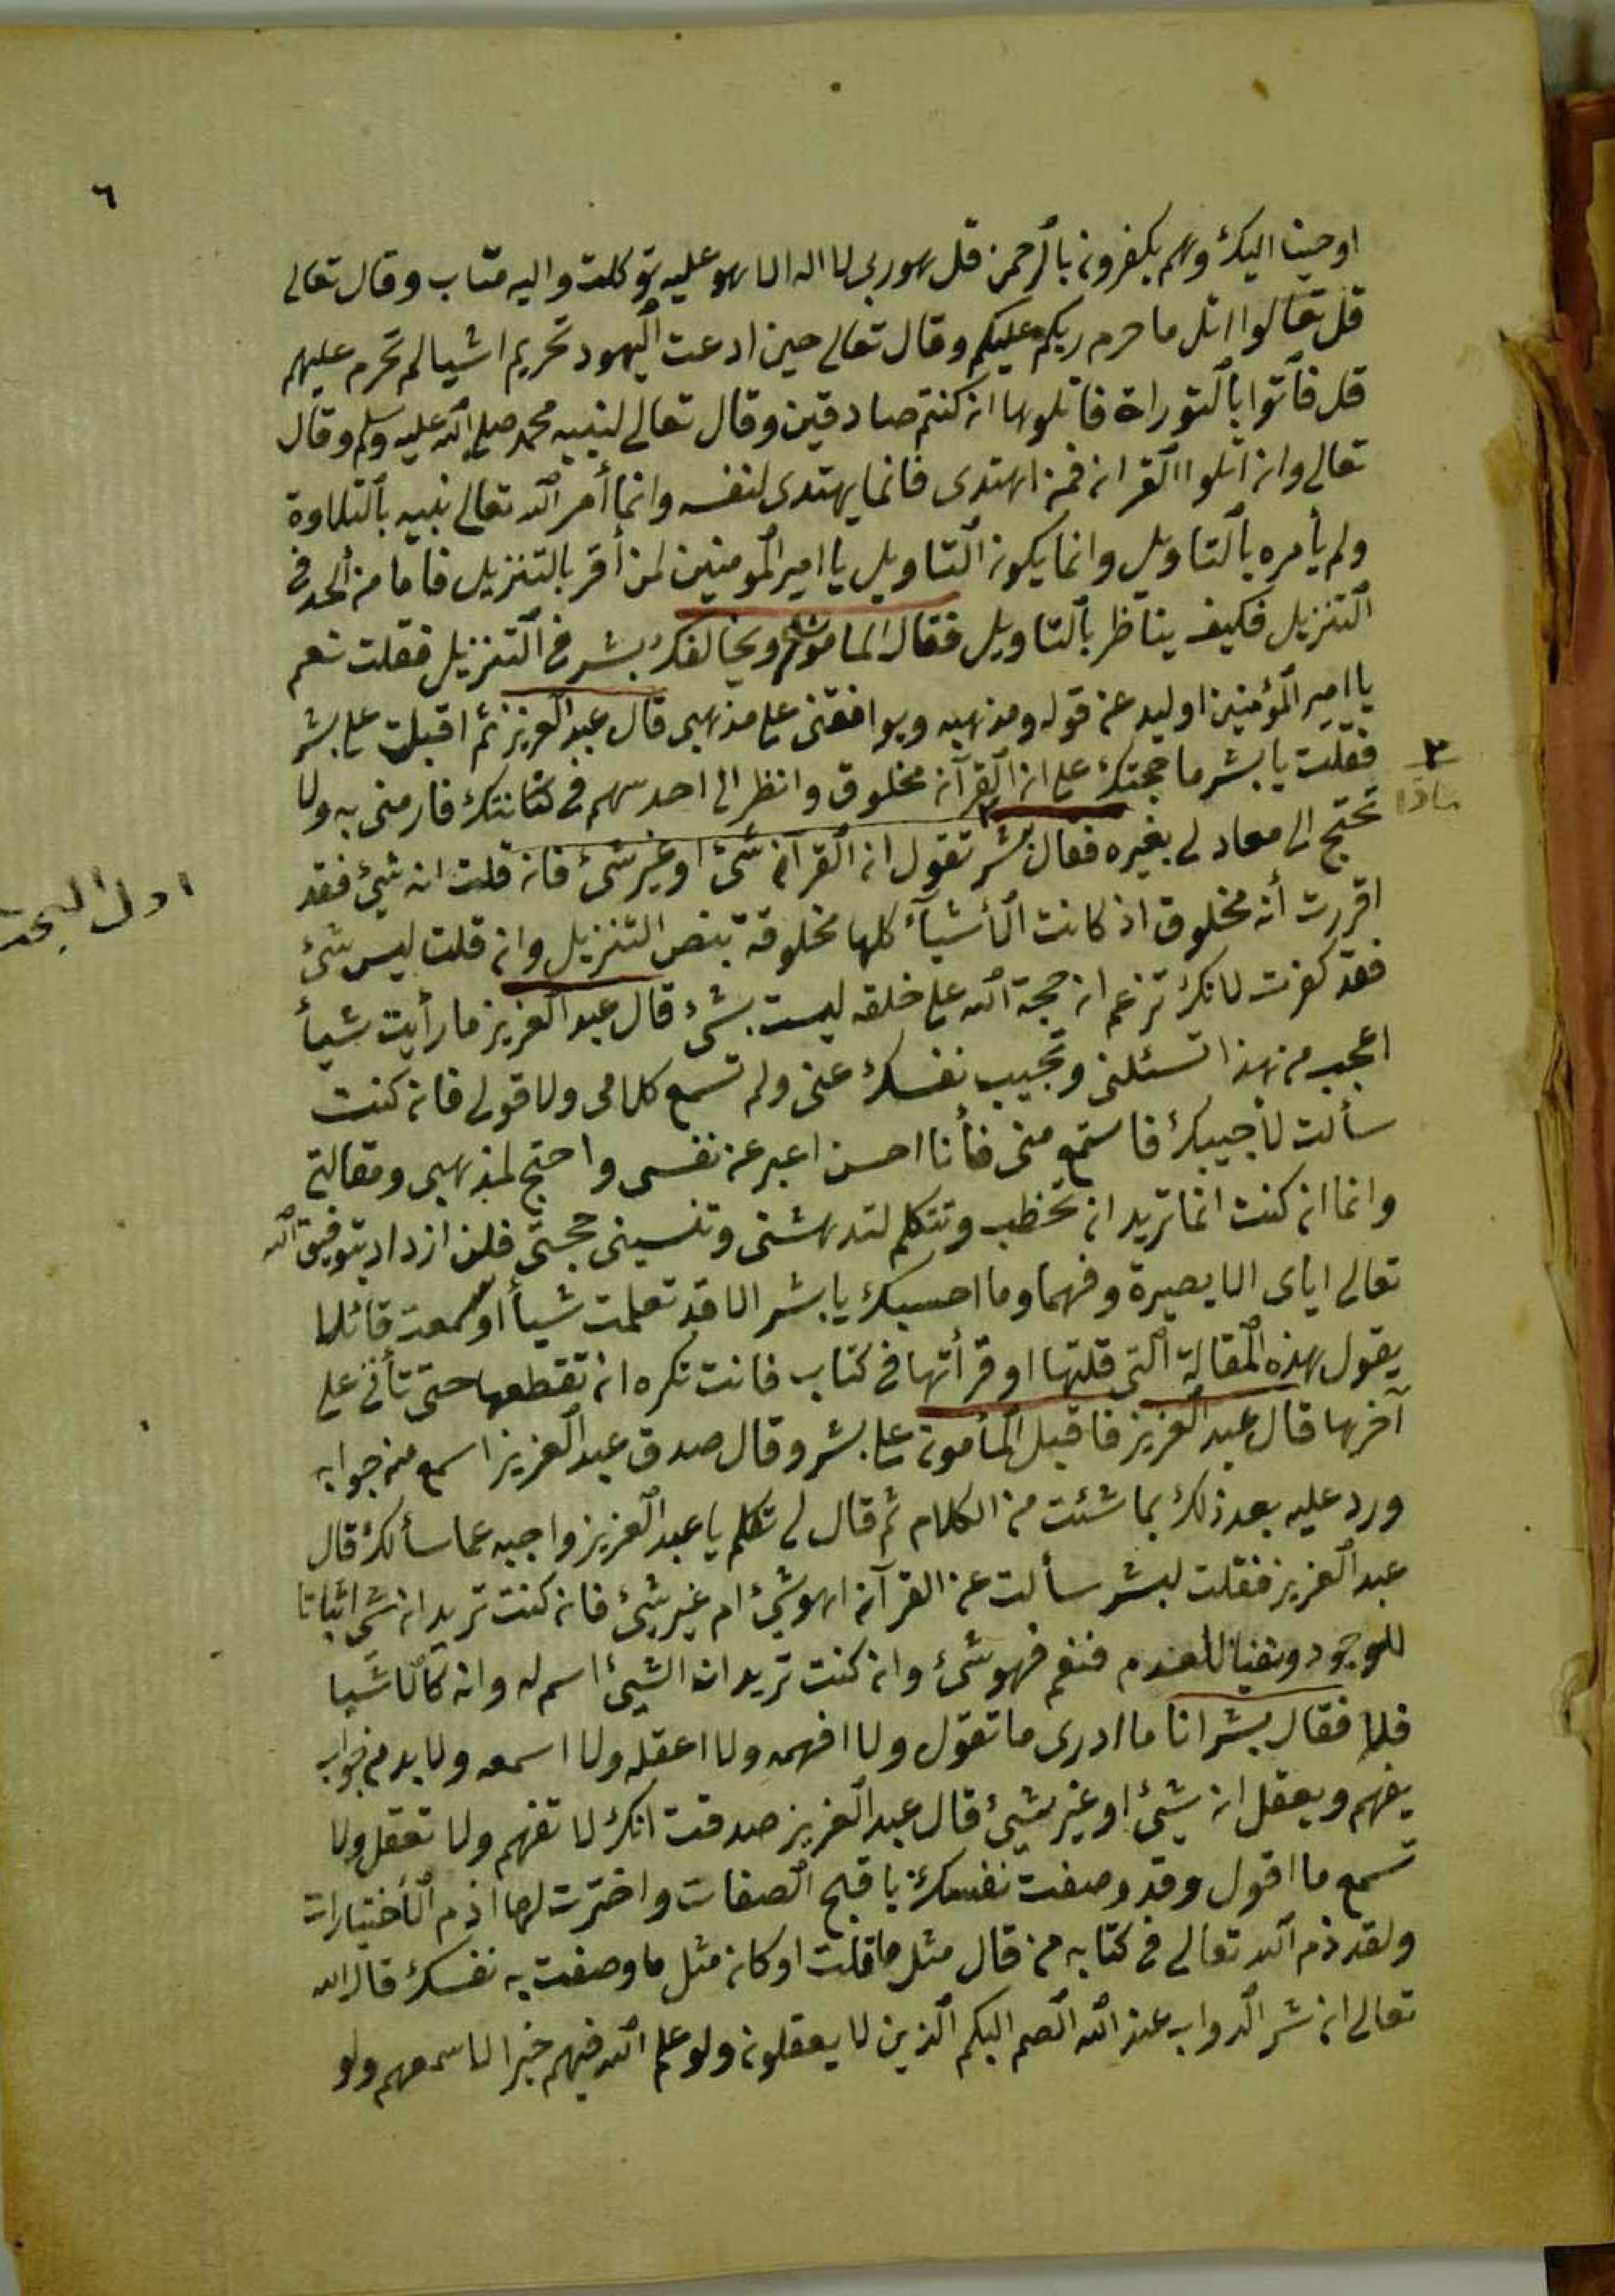 ٦
اوحينا اليك وهم يكفرون بالرحمن قل هو ربى لا اله الا هو عليه توكلت واليه متاب وقال تعالى
قل تعالوا اتل ما حرم ربكم عليكم وقال تعالى حين ادعت اليهود تحريم اشيا لم تحرم عليهم
قل فأتوا بالتوراة فاتلوها ان كنتم صادقين وقال تعالى لنبيه محمد صلى الله عليه وسلم وقال
تعالى وان اتلوا القران فمن اهتدى فانما يهتدى لنفسه وانما أمر الله تعالى نبيه بالتلاوة
ولم يأمره بالتاويل وانما يكون التاويل يا امير المومنين لمن أقر بالتنزيل فاما من ألحد فى
التنزيل فكيف يناظر بالتاويل فقال المامون ويخالفك بشر فى التنزيل فقلت نعم
يا امير المؤمنين اوليد عن قوله ومذهبه ويوافقنى على مذهبى قال عبد العزيز ثم اقبلت على بشر
فقلت يا بشر ما حجتك على ان القرآن مخلوق وانظر الى احد سهم فى كنانتك فارمنى به ولا
تحتج الى معاد لى بغيره فقال بشر تقول ان القرآن شئ او غير شئ فان قلت انه شئ فقد
اقررت أنه مخلوق اذ كانت الأشيآء كلها مخلوقة بنص التنزيل وان قلت ليس شئ
فقد كفرت لانك تزعم ان حجة الله على خلقه ليست بشئ قال عبد العزيز ما رأيت شيأ
اعجب من هذا تسئلنى وتجيب نفسك عنى ولم تسمع كلامى ولا قولى فان كنت
سألت لأجيبك فاستمع منى فأنا احسن اعبر عن نفسى واحتج لمذهبى ومقالتى
وانما ان كنت انما تريد ان تخطب وتتكلم لتدهشنى وتنسينى حجتى فلن ازداد بتوفيق الله
تعالى اياى الا بصيرة وفهما وما احسبك يا بشر الا قد تعلمت شيأ او سمعت قائلا
يقول هذه المقالة التى قلتها او قرأتها فى كتاب فانت تكره ان تقطعها حتى تأتى على
آخرها قال عبد العزيز فاقبل المأمون على بشر وقال صدق عبد العزيز اسمع منه جوابه
ورد عليه بعد ذلك بما شئت من الكلام ثم قال لى تكلم يا عبد العزيز واجبه عما سألك قال
عبد العزيز فقلت لبشر سألت عن القرآن اهو شئ ام غير شئ فان كنت تريد انه شئ اثباتا
للوجود ونفيا للعدم فنعم فهو شئ وان كنت تريد ان الشئ اسم له وانه كالاشيا
فلا فقال بشر انا ما ادرى ما تقول ولا افهمه ولا اعقله ولا اسمعه ولا بد من جواب
يفهم ويعقل انه شئ او غير شئ قال عبد العزيز صدقت انك لا تفهم ولا تعقل ولا
تسمع ما اقول وقد وصفت نفسك باقبح الصفات واخترت لها اذم الأختيارات
ولقد ذم الله تعالى فى كتابه من قال مثل ما قلت او كان مثل ما وصفت به نفسك قال الله
تعالى ان شر الدواب عند الله الصم البكم الذين لا يعقلون ولو علم الله فيهم خيرا لاسمعهم ولو
ماذا
اول البحث